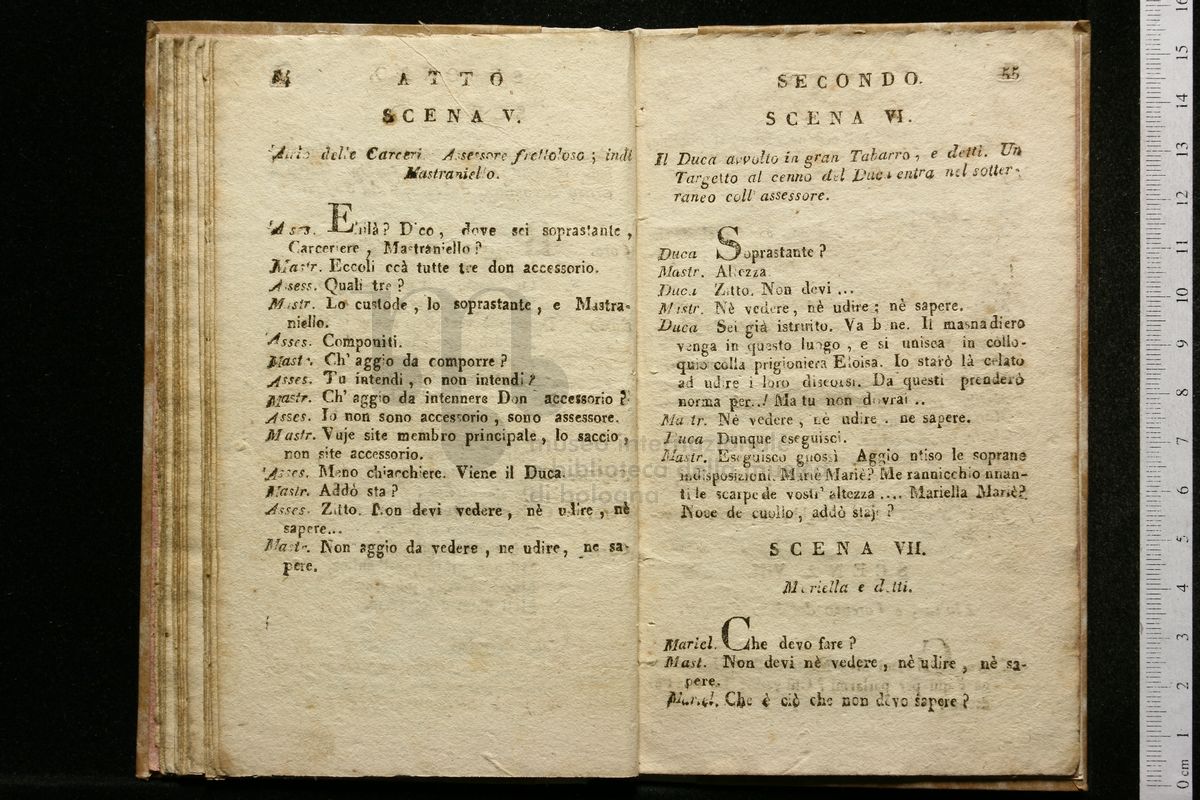 54 ATTO
SCENA V.
Atrio delle Carceri Assessore frettoloso ; indi
Mastraniello.
Asses. Ehilà? Dico, dove sei soprastante,
Carceriere, Mastraniello?
Mastr. Eccoli ccà tutte tre don accessorio.
Assess. Quali tre?
Mastr. Lo custode, lo soprastante, e Mastra-
niello.
Asses. Componiti.
Mastr. Ch' aggio da comporre?
Asses. Tu intendi, o non intendi?
Mastr. Ch' aggio da intennere Don accessorio?
Asses. Io non sono accessorio, sono assessore.
Mastr. Vuje site membro principale, lo saccio,
non site accessorio.
Asses. Meno chiacchiere. Viene il Duca.
Mastr. Addò sta?
Asses. Zitto. Non devi vedere, nè udire, nè
sapere...
Mastr. Non aggio da vedere, ne udire, ne sa-
pere.
SECONDO. 55
SCENA VI.
Il Duca avvolto in gran Tabarro, e detti. Un
Targetto al cenno del Duca entra nel sotter-
raneo coll' assessore.
Duca Soprastante?
Mastr. Altezza.
Duca Zitto. Non devi ...
Mastr. Nè vedere, nè udire; nè sapere.
Duca Sei già istruito. Va bene. Il masnadiero
venga in questo luogo, e si unisca in collo-
quio colla prigioniera Eloisa. Io starò là celato
ad udire i loro discorsi. Da questi prenderò
norma per..! Ma tu non dovrai ..
Mastr. Nè vedere, nè udire. ne sapere.
Duca Dunque eseguisci.
Mastr. Eseguisco gnossì Aggio ntiso le soprane
indisposizioni. Mariè Mariè? Me rannicchio nnan-
ti le scarpe de vostr' altezza .... Mariella Mariè?
Noce de cuollo, addò staje?
SCENA VII.
Mariella e detti.
Mariel. Che devo fare?
Mast. Non devi nè vedere, nè udire, nè sa-
pere.
Mariel. Che è ciò che non devo sapere?
museo internazionale
biblioteca della musica
di bologna
0 cm 1 2 3 4 5 6 7 8 9 10 11 12 13 14 15 16